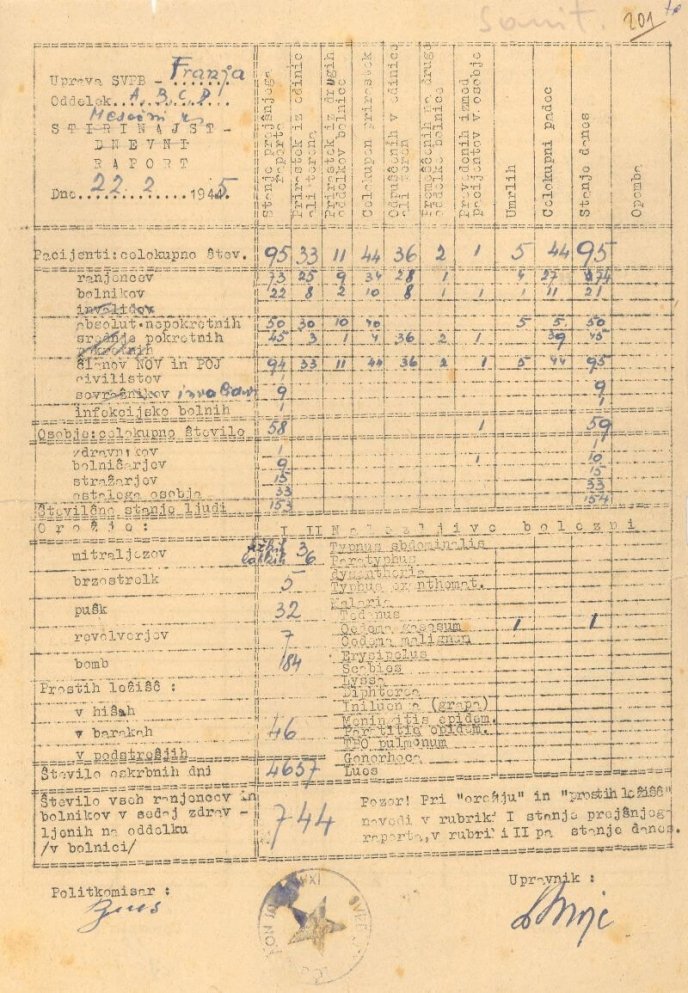 Sanit.
201
Uprava SVPB - Franja
Oddelek A, B, C, D,
Mesečni
ŠTIRINAJST-
DNEVNI
RAPORT
Dne 22. 2 1945
Stanje prejšnjega raporta
Prirastek iz edinic ali terena
Prirastek iz drugih oddelkov bolnice
Celokupen prirastek
Odpuščenih v edinice ali teren
Premeščenih na druge oddelke bolnice
Prevedenih izmed pacijentov v osebje
Umrlih
Celokupni padec
Stanje danes
Opomba
Pacijenti:celokupno štev. 95 33 11 44 36 2 1 5 44 95
ranjencev 73 25 9 34 28 1 4 27 74
bolnikov 22 8 2 10 8 1 1 1 11 21
invalidov
absolut.nepokretnih 50 30 10 40 5 5 50
srednje pokretnih 45 3 1 4 36 2 1 39 45
pokretnih
članov NOV in POJ 94 33 11 44 36 2 1 5 44 95
civilistov
sovražnikov 9 9
infekcijsko bolnih 1 1
Osebje:celokupno število 58 1 59
zdravnikov 1 1
bolničarjev 9 1 10
stražarjev 15 15
ostalega osebja 33 33
Številčno stanje ljudi 153 154
Orožje: I II Nalezljive bolezni
mitraljezov 3 6 Typhus abdominalis
Paratyphus
brzostrelk 5 dysentheria
Typhus exanthomat.
pušk 32 Malaria
Tedanus
revolverjev 7 Oedema gasosum 1 1
Oedema malignum
bomb 184 Erysipelus
Scabies
Prostih ležišč : Lyssa
Diphterea
v hišah Influenca (grapa)
Meningitis epidem.
v barakah 46 Paratitis epidem.
TBC pulmonum
v podstrešjih Gonorhoea
Število oskrbnih dni 4657 Lues
Število vseh ranjencev in
bolnikov v sedaj zdrav -
ljenih na oddelku
/v bolnici/
744
Pozor! Pri "orožju" in "prostih ležišč"
navedi v rubrik' I stanje prejšnjega
raporta, v rubri i II pa stanje danes.
Politkomisar :
Upravnik :